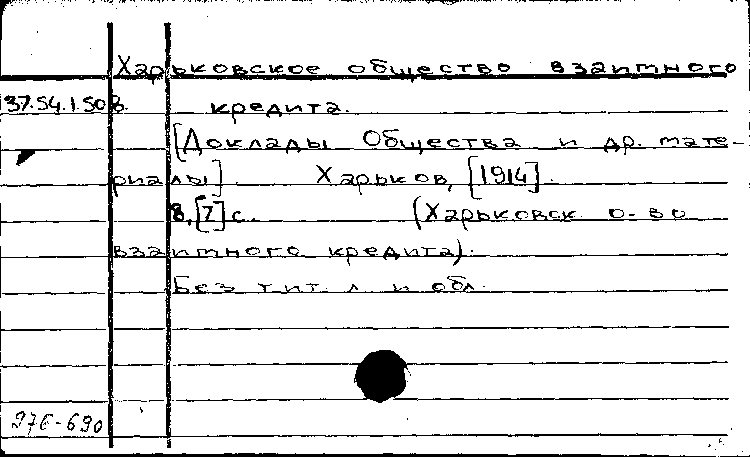 Харьковское общество взаимного
37.54.1.508. кредита.
[Доклады Общества и др. мате-
риалы] Харьков, [1914].
8, [7] с. (Харьковск. о-во
взаимного кредита).
Без тит. л. и обл.
976-690